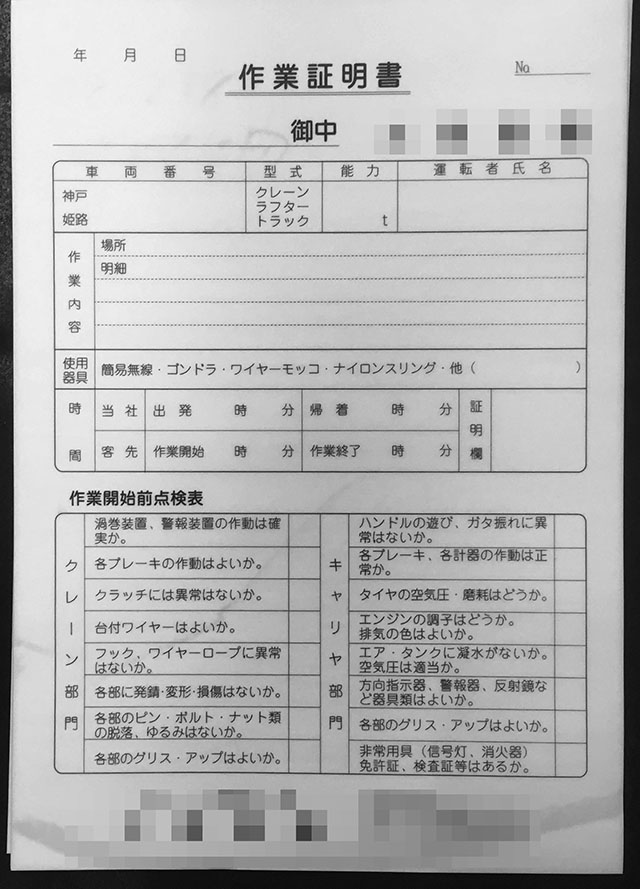 年 月 日
作業証明書
No
御中
車両番号 型式 能力 運転者氏名
神戸
姫路
クレーン
ラフター
トラック
t
作業内容
場所
明細
使用器具
簡易無線・ゴンドラ・ワイヤーモッコ・ナイロンスリング・他( )
時間
当社 出発 時 分 帰着 時 分
客先 作業開始 時 分 作業終了 時 分
証明欄
作業開始前点検表
クレーン部門
渦巻装置、警報装置の作動は確
実か。
各ブレーキの作動はよいか。
クラッチには異常はないか。
台付ワイヤーはよいか。
フック、ワイヤーロープに異常
はないか。
各部に発錆・変形・損傷はないか。
各部のピン・ボルト・ナット類
の脱落、ゆるみはないか。
各部のグリス・アップはよいか。
キャリヤ部門
ハンドルの遊び、ガタ振れに異
常はないか。
各ブレーキ、各計器の作動は正
常か。
タイヤの空気圧・磨耗はどうか。
エンジンの調子はどうか。
排気の色はよいか。
エア・タンクに凝水がないか。
空気圧は適当か。
方向指示器、警報器、反射鏡な
ど器具類はよいか。
各部のグリス・アップはよいか。
非常用具(信号灯、消火器)
免許証、検査証等はあるか。